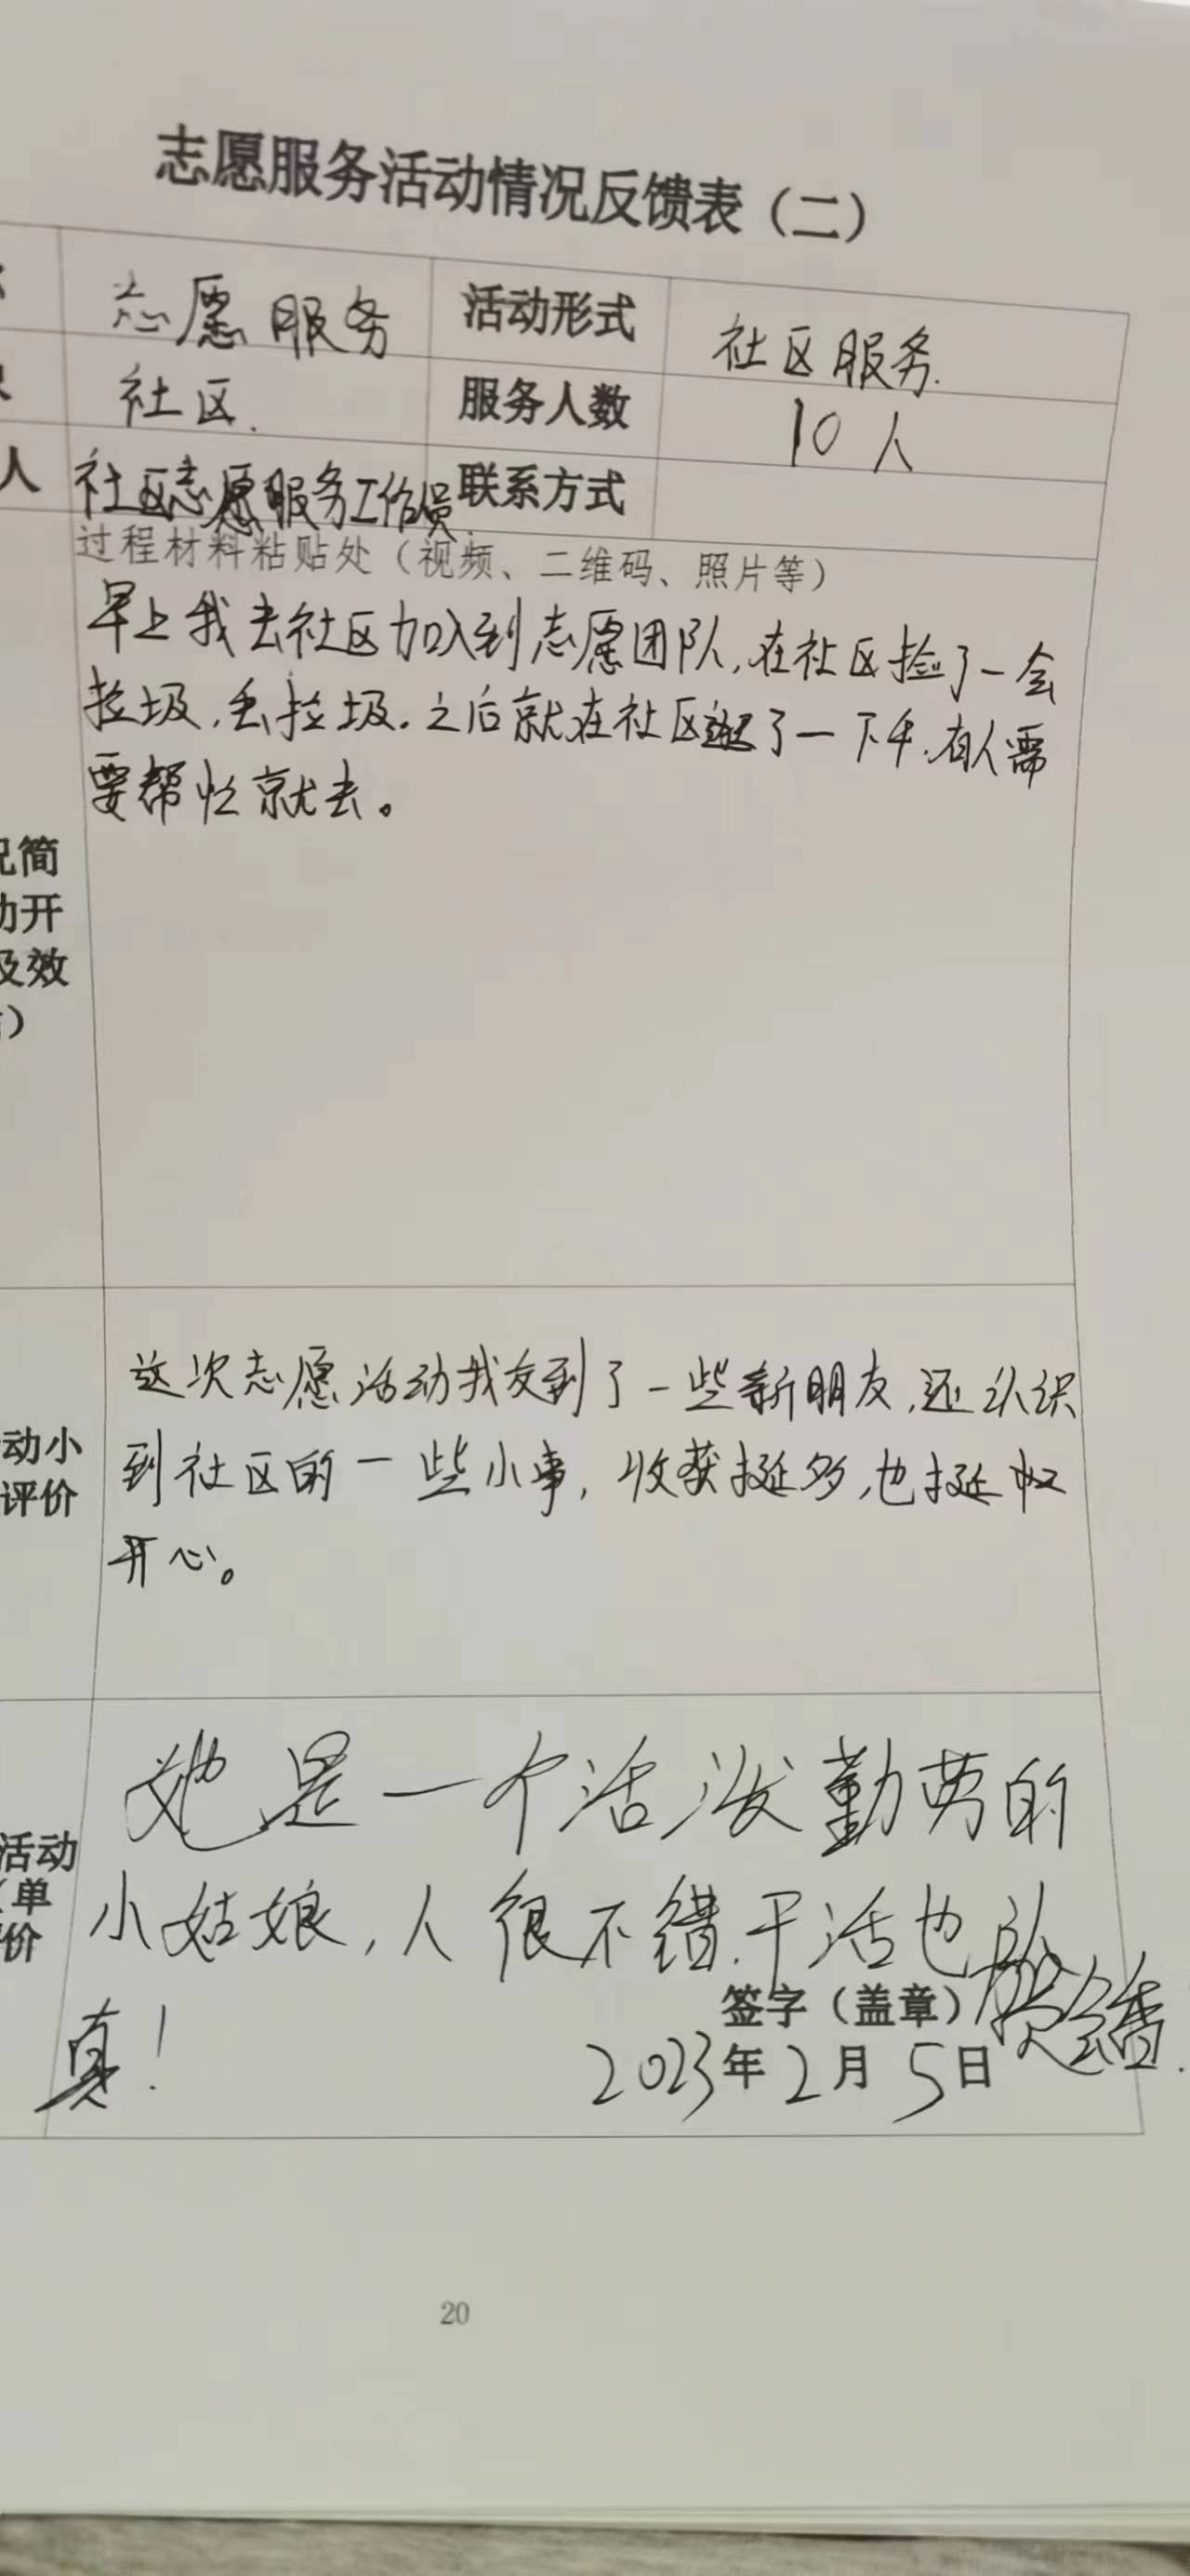 志愿服务活动情况反馈表（二）
志愿服务 活动形式 社区服务.
社区. 服务人数 10人
人 社区志愿服务工作员. 联系方式
过程材料粘贴处（视频、二维码、照片等）
早上我去社区加入到志愿团队,在社区捡了一会
垃圾,丢垃圾.之后就在社区了一下午.有人需
要帮忙就去。
况简
动开
及效
）
这次志愿活动我交到了一些新朋友,还认识
到社区的一些小事,收获挺多,也挺
开心。
动小
评价
她是一个活泼勤劳的
小姑娘,人很不错.干活也认
真!
活动
（单
价
签字（盖章）
2023年2月5日
20